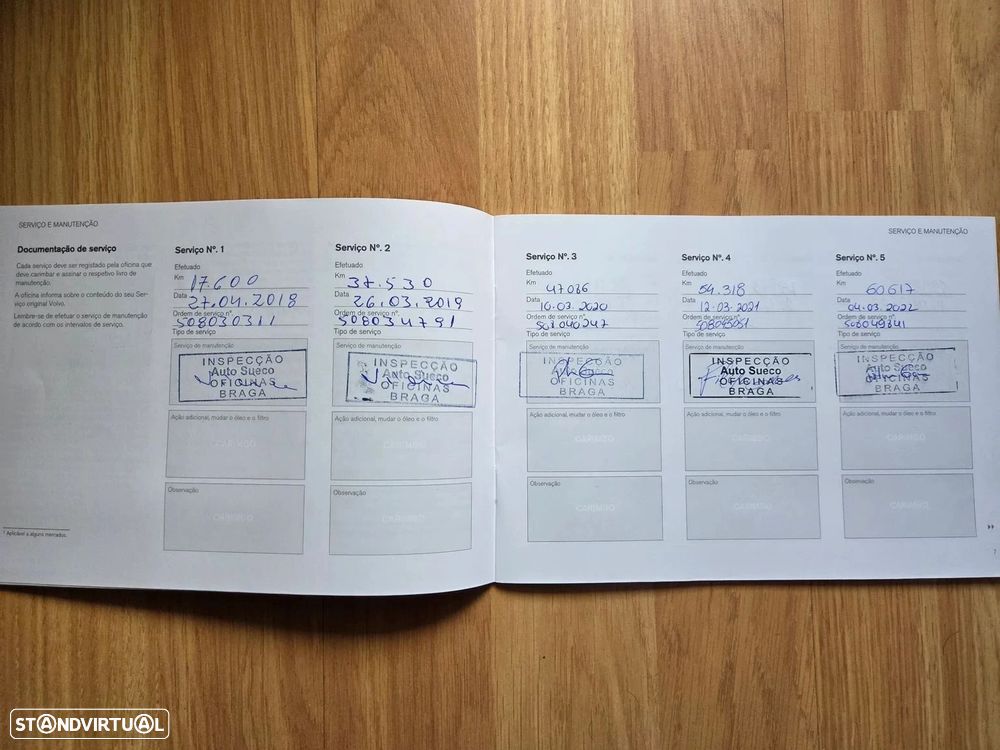 SERVIÇO E MANUTENÇÃO
Documentação de serviço
Cada serviço deve ser registado pela oficina que
deve carimbar e assinar o respetivo livro de
manutenção.
A oficina informa sobre o conteúdo do seu Ser-
viço original Volvo.
Lembre-se de efetuar o serviço de manutenção
de acordo com os intervalos de serviço.
1 Aplicável a alguns mercados.
Serviço Nº. 1
Efetuado
Km 17.600
Data 27.04.2018
Ordem de serviço nº.
508030311
Tipo de serviço
Serviço de manutenção
INSPECÇÃO
Auto Sueco
OFICINAS
BRAGA
Ação adicional, mudar o óleo e o filtro
CARIMBO
Observação
CARIMBO
Serviço Nº. 2
Efetuado
Km 37.530
Data 26.03.2019
Ordem de serviço nº.
508034791
Tipo de serviço
Serviço de manutenção
INSPECÇÃO
Auto Sueco
OFICINAS
BRAGA
Ação adicional, mudar o óleo e o filtro
CARIMBO
Observação
CARIMBO
SERVIÇO E MANUTENÇÃO
Serviço Nº. 3
Efetuado
Km
47.036
Data
10.03.2020
Ordem de serviço nº.
508040247
Tipo de serviço
Serviço de manutenção
INSPECÇÃO
OFICINAS
BRAGA
Ação adicional, mudar o óleo e o filtro
CARIMBO
Observação
CARIMBO
Serviço Nº. 4
Efetuado
Km
54.318
Data
12.03.2021
Ordem de serviço nº.
Tipo de serviço
Serviço de manutenção
INSPECÇÃO
Auto Sueco
OFICINAS
BRAGA
Ação adicional, mudar o óleo e o filtro
CARIMBO
Observação
CARIMBO
Serviço Nº. 5
Efetuado
Km
60617
Data
04.03.2022
Ordem de serviço nº.
Tipo de serviço
Serviço de manutenção
INSPECÇÃO
Auto Sueco
OFICINAS
BRAGA
Ação adicional, mudar o óleo e o filtro
CARIMBO
Observação
CARIMBO
7
STANDVIRTUAL